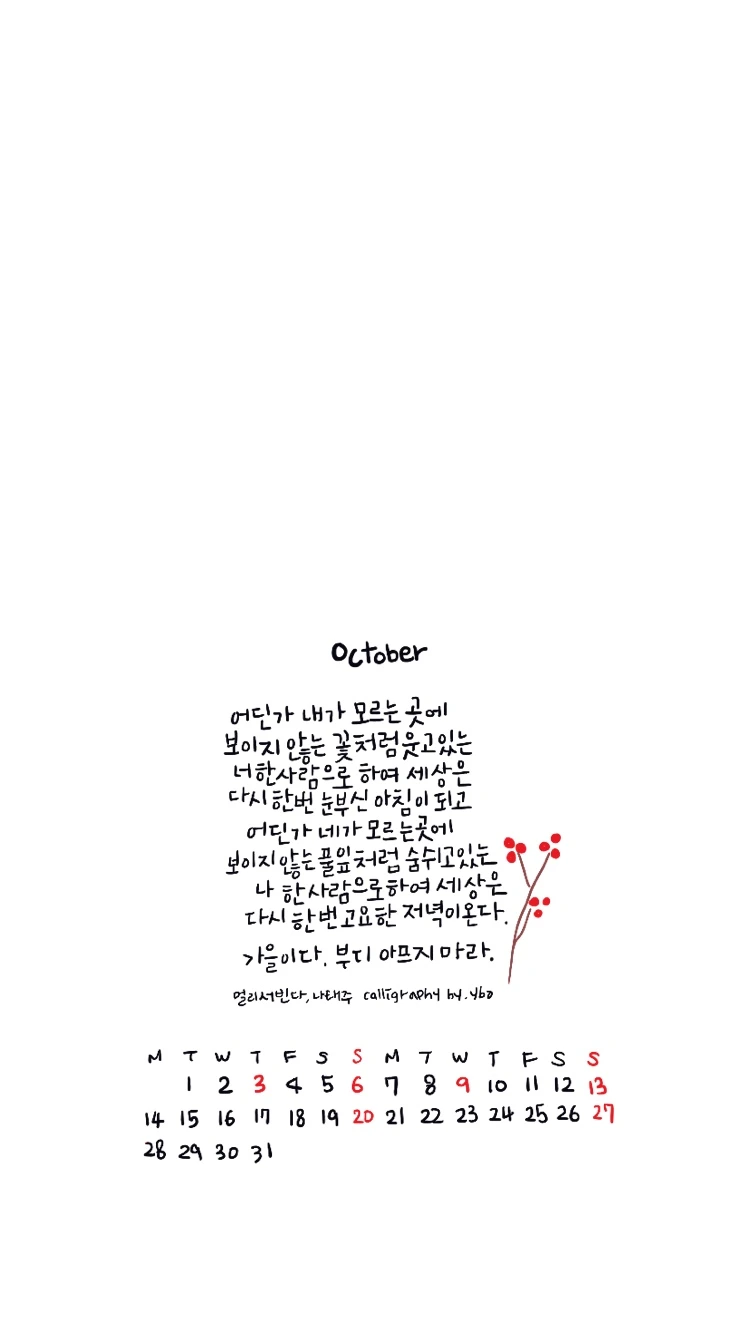 October
어딘가 내가 모르는 곳에
보이지 않는 꽃처럼 웃고 있는
너 한 사람으로 하여 세상은
다시 한번 눈부신 아침이 되고
어딘가 네가 모르는 곳에
보이지 않는 풀잎처럼 숨쉬고 있는
나 한 사람으로 하여 세상은
다시 한번 고요한 저녁이 온다.
가을이다. 부디 아프지 마라.
멀리서 빈다, 나태주 calligraphy by. ybo
M T W T F S S M T W T F S S
1 2 3 4 5 6 7 8 9 10 11 12 13
14 15 16 17 18 19 20 21 22 23 24 25 26 27
28 29 30 31